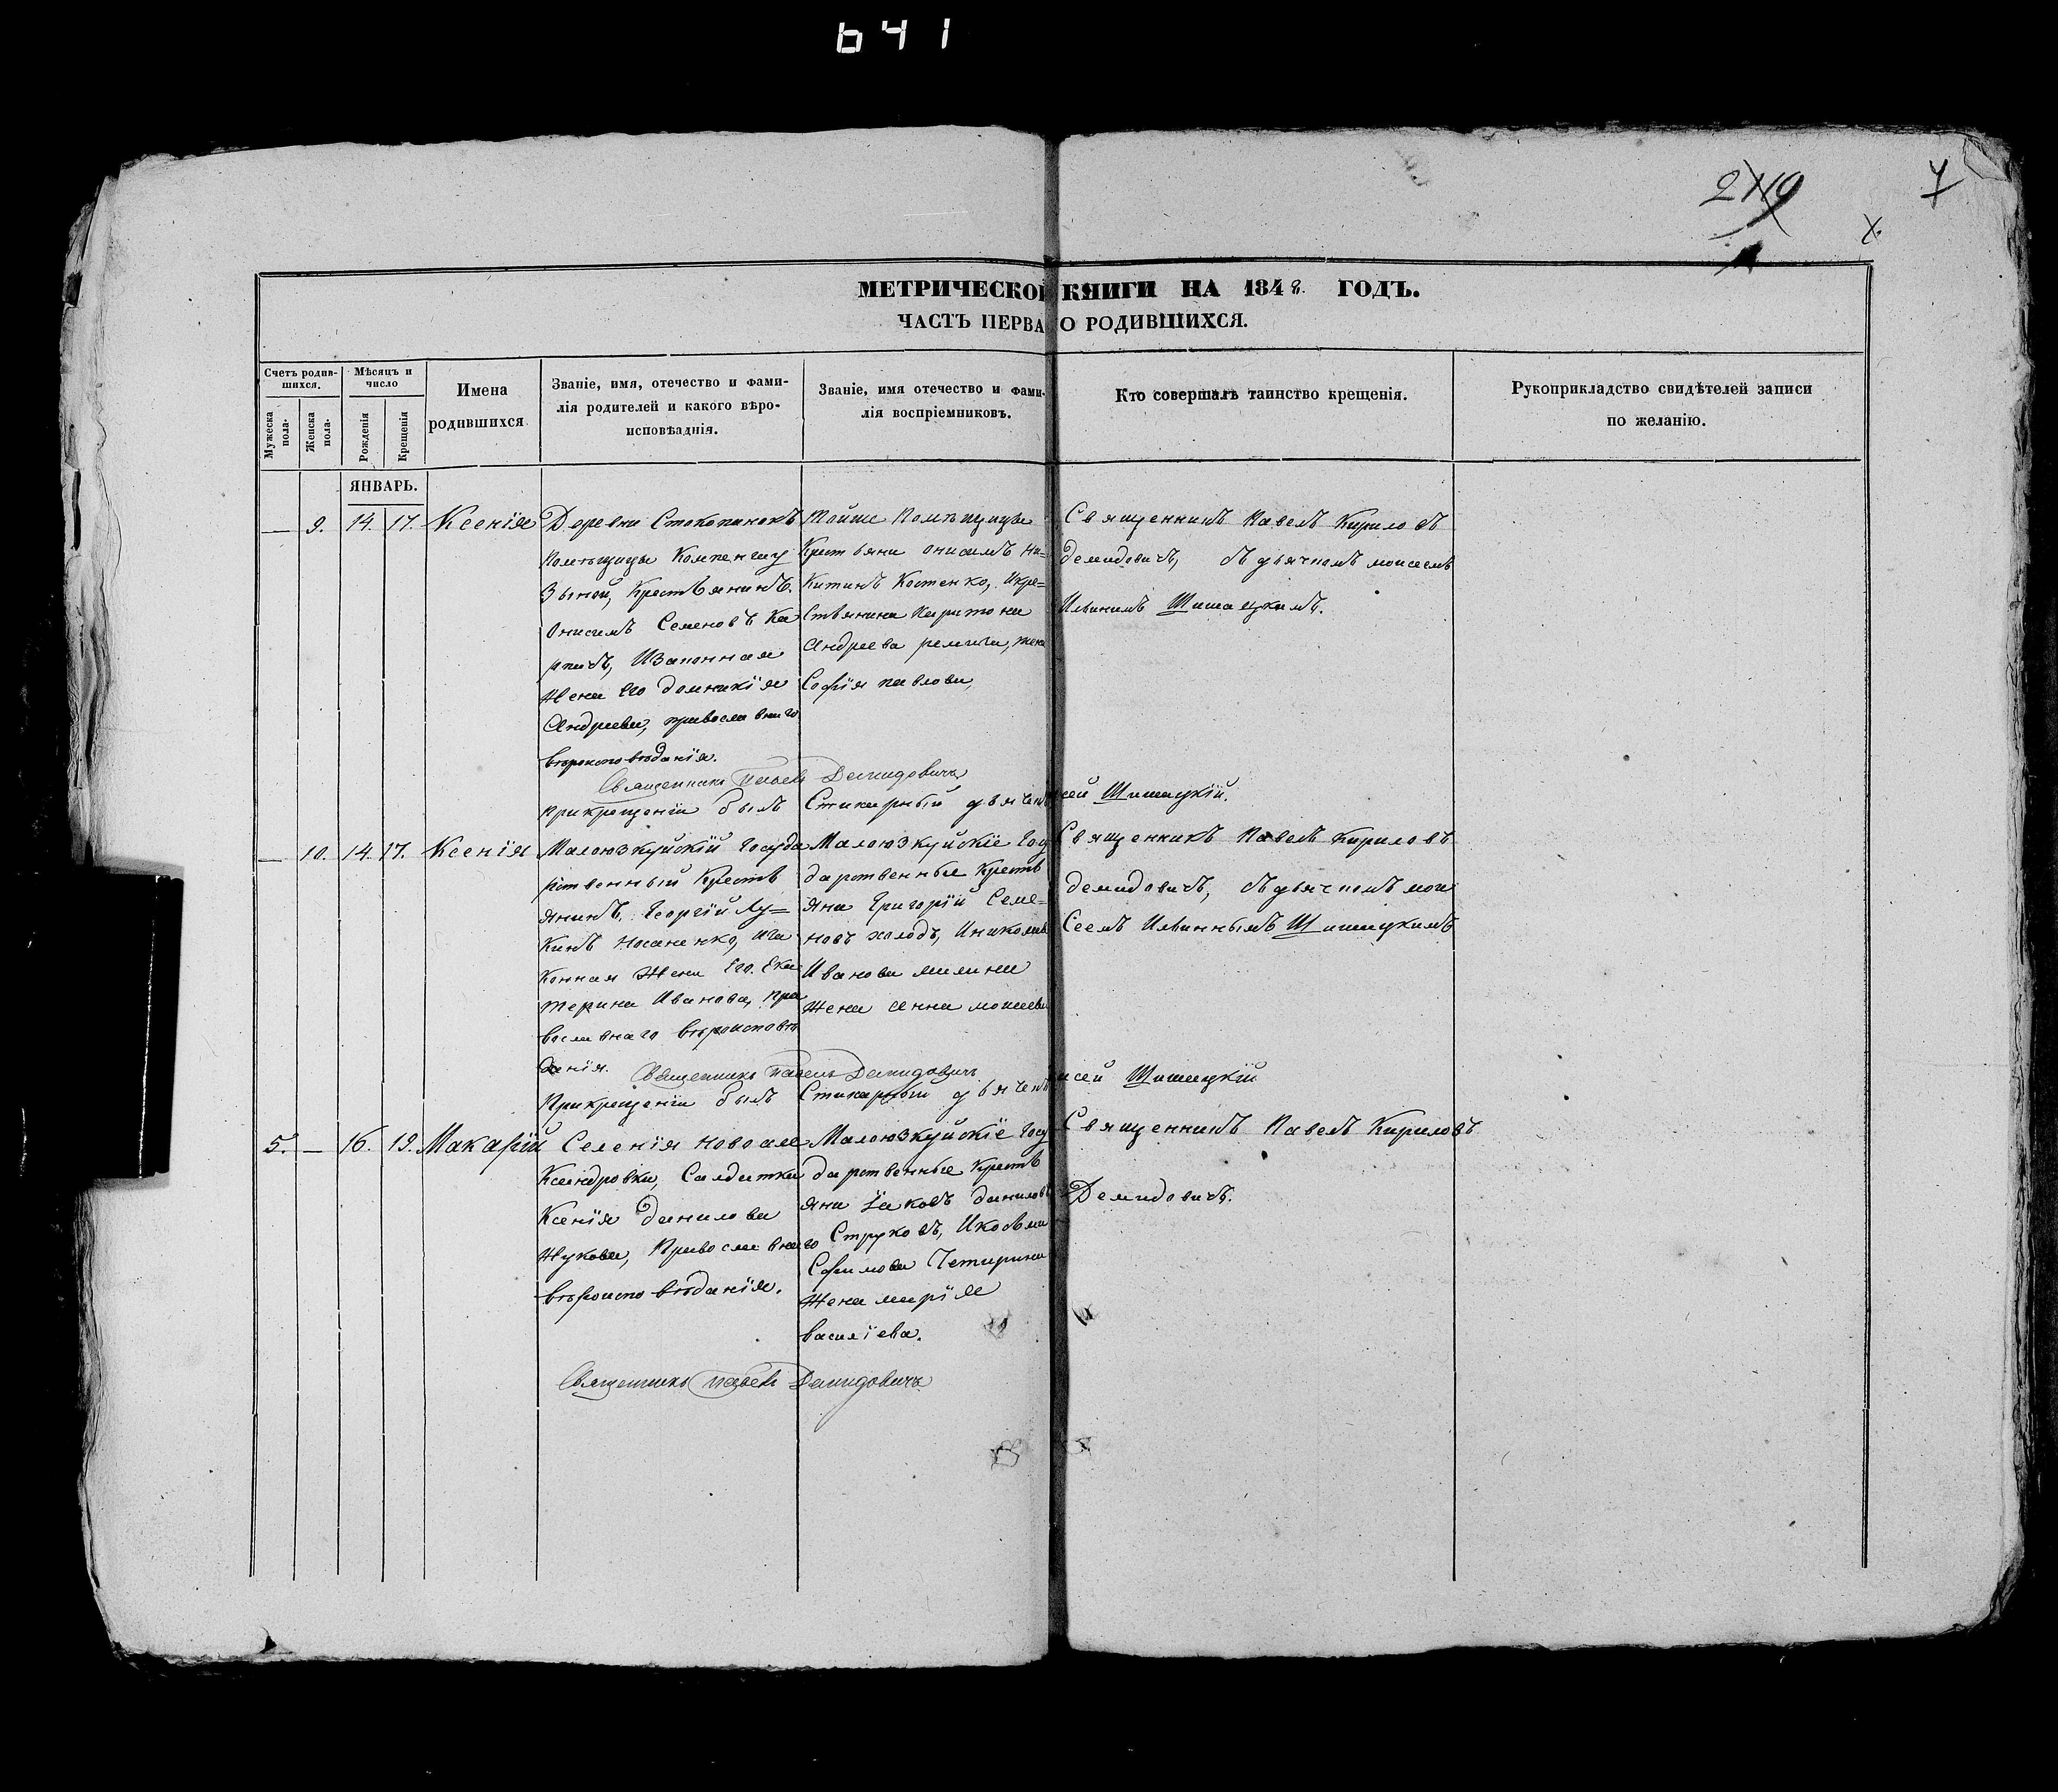 641
249
7
МЕТРИЧЕСКОЙ КНИГИ НА 1848. ГОДЪ.
ЧАСТЬ ПЕРВА О РОДИВШИХСЯ.
Счетъ родив-
шихся.
Мужеска пола.
Женска пола.
Мѣсяцъ и
число
Рожденія
Крещенія
Имена
родившихся
Званіе, имя, отечество и фами-
лія родителей и какого вѣро-
исповѣаднія.
Званіе, имя отечество и фами-
лія воспріемниковъ.
Кто совершалъ таинство крещенія.
Рукоприкладство свидѣтелей записи
по желанію.
ЯНВАРЬ.
— 9. 14. 17. Ксенія
Деревни
Помѣщицы
Зыной, Крестьянинъ.
Онисимъ Семеновъ Ка
рпичъ, Изаконная
Жена Его домникія
Андреева, православнаго
вѣроисповѣданія.
Тойже Помѣщицы
Крестьяни онисимъ Ни=
Китинъ Костенко, Икре=
Стьянина Харитона
Андреева жена
Софія павлова,
Священникъ Павелъ Кириловъ
демидовичъ, съ дьячкомъ моисеемъ
Ильинимъ Шишацкимъ.
Священникъ Павелъ Демидовичъ
При крещеніи былъ Стихарный дьячекъ
сей Шишацкій.
— 10. 14. 17. Ксенія
Малоюзкуйскій Госуда
рственный Кресть
янинъ. Георгій Лу=
Кинъ Носаненко, Иза
Конная Жена Его. Ека
терина Иванова, пра
вославнаго вѣроисповѣ
данія.
Малоюзкуйскіе Госу
дарственные Кресть
яне Григорій Семе=
новъ холодъ, Иникола
Иванова
Жена Анна моисеева
Священникъ Павелъ Кириловъ
демидовичъ, съ дьячкомъ мои
Сеемъ Ильиннымъ Шишацкимъ
Священникъ Павелъ Демидовичъ
При крещеніи былъ Стихарный дьячекъ
исей Шишацкій
5. — 16. 19. Макарій
Селенія Новоале
Ксандровки, Салдатка
Ксенія данилова
Жукова, Православнаго
вѣроисповѣданія.
Малоюзкуйскіе Госу
дарственные Кресть
яни Іаковъ даниловъ
Струковъ, Икосьми
Жена марія
василіева.
Священникъ Павелъ Кириловъ
Демидовичъ.
Священникъ Павелъ Демидовичъ